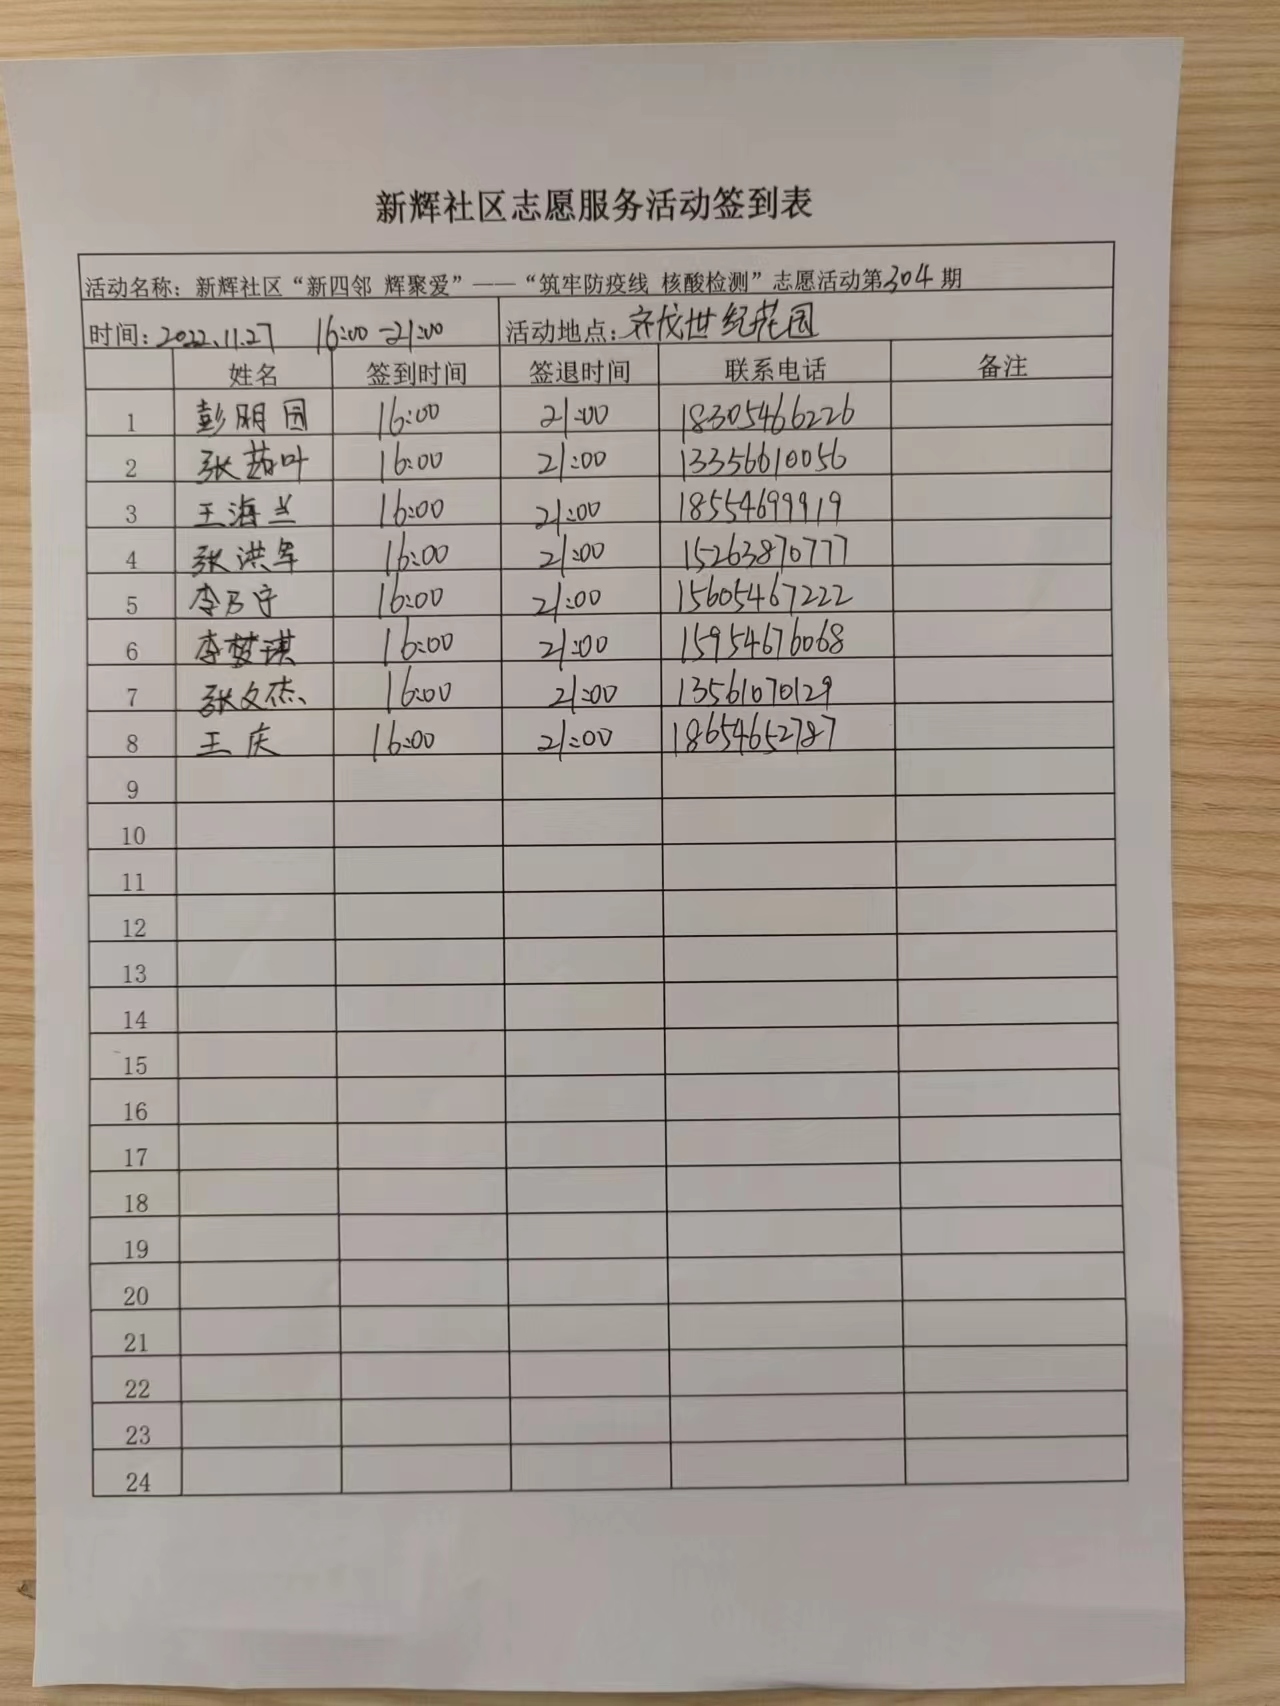 新辉社区志愿服务活动签到表
活动名称：新辉社区“新四邻 辉聚爱”——“筑牢防疫线 核酸检测”志愿活动第304期
时间：2022.11.27 16:00-21:00 活动地点：众成世纪花园
姓名 签到时间 签退时间 联系电话 备注
1 彭明园 16:00 21:00 18305466226
2 张茹叶 16:00 21:00 13356610056
3 王海兰 16:00 21:00 18554699919
4 张洪军 16:00 21:00 15263870777
5 李乃宁 16:00 21:00 15605467222
6 李梦琪 16:00 21:00 15954676068
7 张文杰 16:00 21:00 13561070129
8 王庆 16:00 21:00 18654652787
9
10
11
12
13
14
15
16
17
18
19
20
21
22
23
24